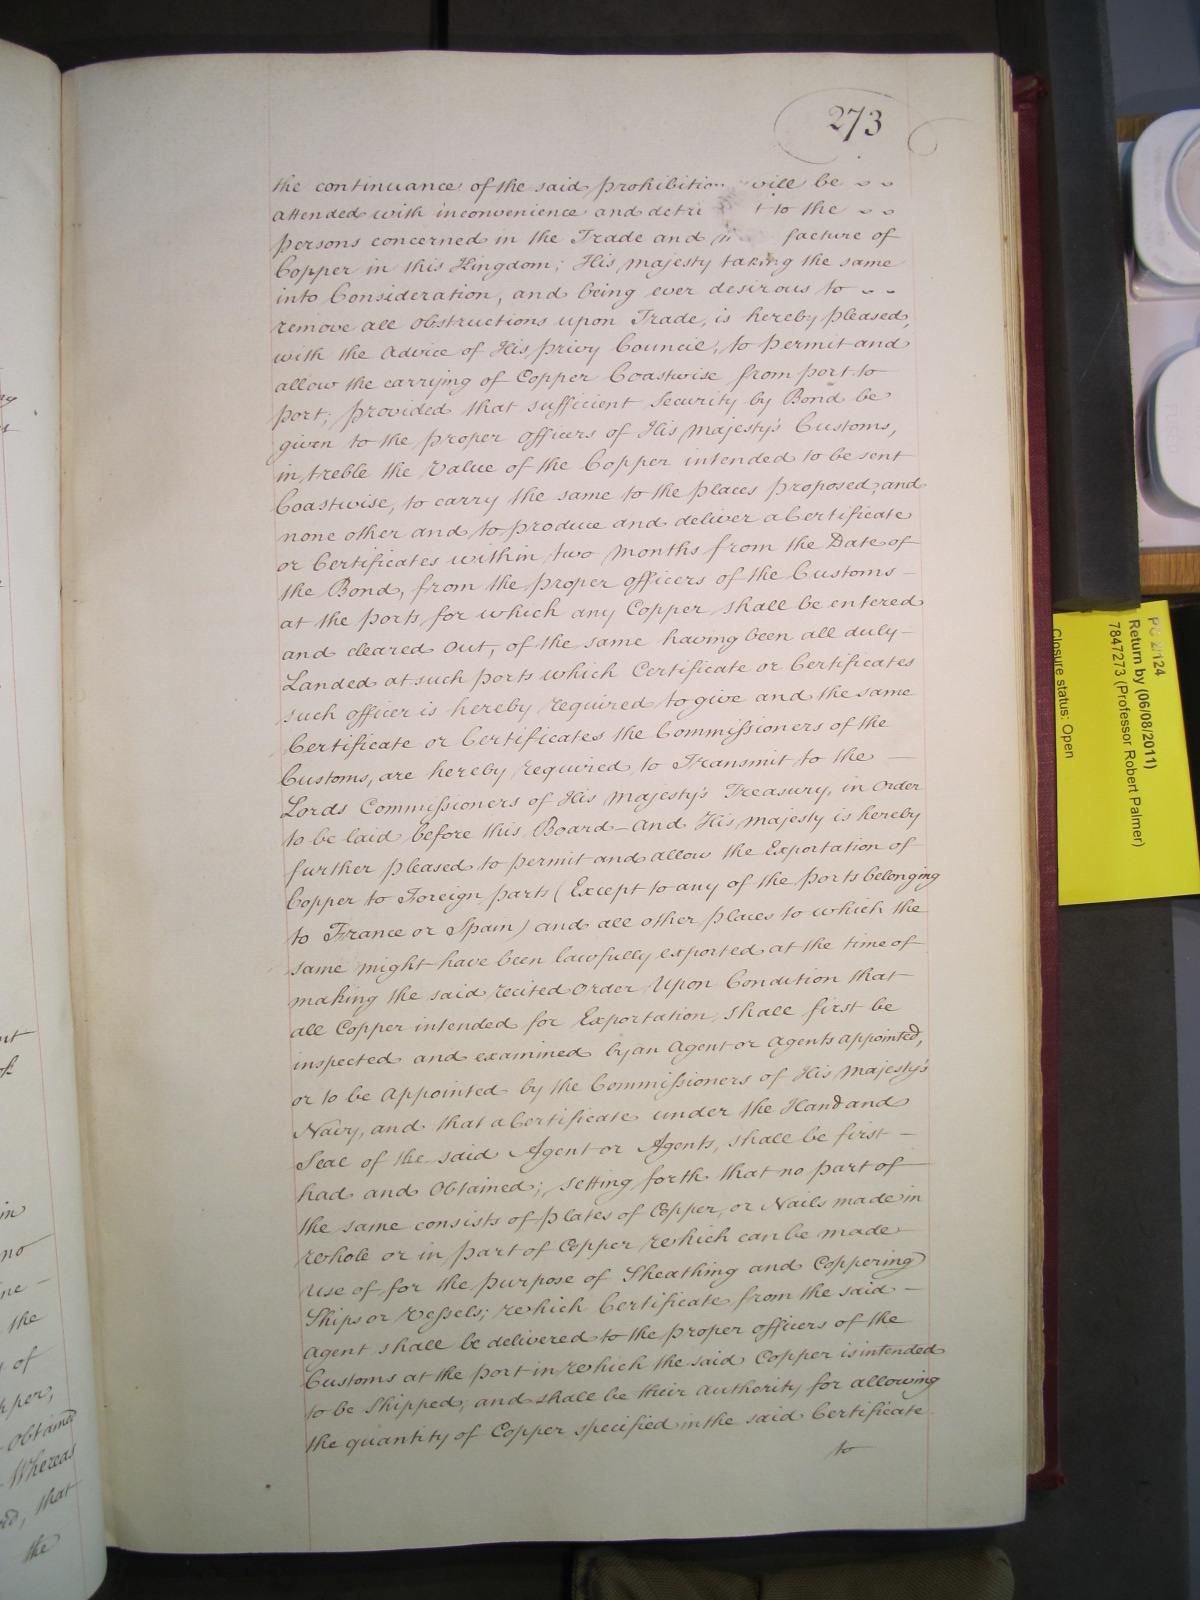 273
the continuance of the said prohibition will be
attended with inconvenience and detri t to the
persons concerned in the Trade and facture of
Copper in this Kingdom; His Majesty taking the same
into Consideration, and being ever desirous to
remove all obstructions upon Trade, is hereby Pleased,
with the Advice of His Privy Council, to Permit and
allow the carrying of Copper Coastwise from port to
port; provided that sufficient Security by Bond be
given to the proper officers of His Majesty's Customs,
in treble the Value of the Copper intended to be sent
Coastwise, to carry the same to the places proposed, and
none other and to produce and deliver a Certificate
or Certificates within two Months from the Date of
the Bond, from the proper officers of the Customs –
at the Ports for which any Copper shall be entered
and cleared out, of the same having been all duly –
Landed at such ports which Certificate or Certificates
such officer is hereby required to give and the same
Certificate or Certificates the Commissioners of the
Customs, are hereby required to Transmit to the –
Lords Commissioners of His Majesty's Treasury, in Order
to be laid before this Board – And His Majesty is hereby
further pleased to permit and allow the Exportation of
Copper to Foreign parts (Except to any of the Ports belonging
to France or Spain) and all other places to which the
same might have been lawfully exported at the time of
making the said recited Order Upon Condition that
all Copper intended for Exportation, shall first be
inspected and examined by an Agent or Agents appointed,
or to be Appointed by the Commissioners of His Majesty's
Navy, and that a Certificate under the Hand and
Seal of the said Agent or Agents, shall be first –
had and Obtained; setting forth that no part of
the same consists of Plates of Copper, or Nails made in
whole or in part of Copper which can be made
use of for the purpose of Sheathing and Coppering
Ships or Vessels; which Certificate from the said –
Agent shall be delivered to the proper officers of the
Customs at the Port in which the said Copper is intended
to be Shipped, and shall be their authority for allowing
the quantity of Copper specified in the said Certificate
to
PC 2/124
Return by (06/08/2011)
7847273 (Professor Robert Palmer)
Closure status: Open
in
no
the
of
Obtained
Whereas
that
the